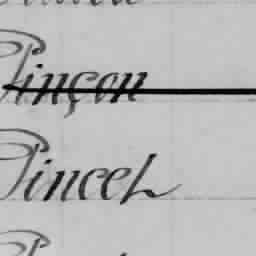 Pinçon
Pincel